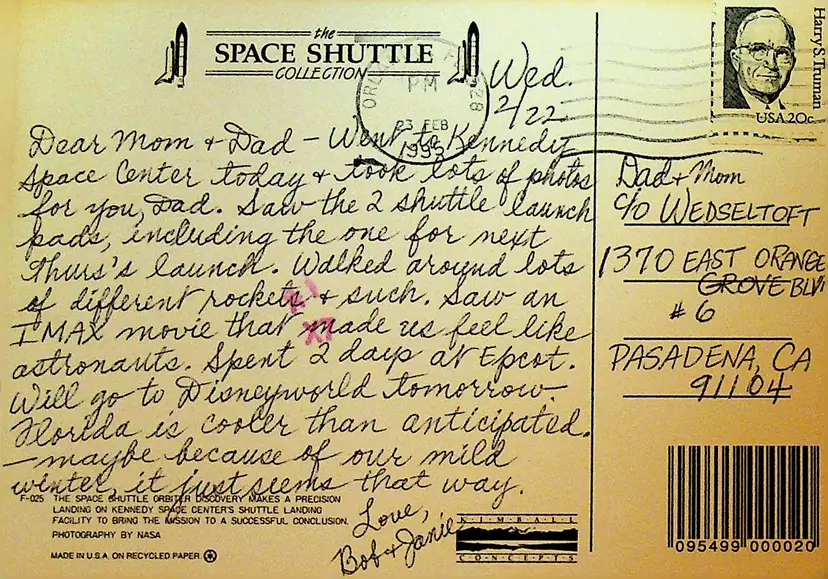 the
SPACE SHUTTLE
COLLECTION
Wed.
2/22
PM
23 FEB
1995
Dear Mom & Dad - Went to Kennedy
Space Center today & took lots of photos
for you, Dad. Saw the 2 shuttle launch
pads, including the one for next
Thurs's launch. Walked around lots
of different rockets & such. Saw an
IMAX movie that made us feel like
astronauts. Spent 2 days at Epcot.
Will go to Disneyworld tomorrow.
Florida is cooler than anticipated.
- maybe because of our mild
winter, it just seems that way.
Love,
Bob & Janie
F-025 THE SPACE SHUTTLE ORBITER DISCOVERY MAKES A PRECISION
LANDING ON KENNEDY SPACE CENTER'S SHUTTLE LANDING
FACILITY TO BRING THE MISSION TO A SUCCESSFUL CONCLUSION.
PHOTOGRAPHY BY NASA
MADE IN U.S.A. ON RECYCLED PAPER
KIMBALL
CONCEPTS
Harry S. Truman
USA 20c
Dad & Mom
c/o WEDSELTOFT
1370 EAST ORANGE
GROVE BLVD
# 6
PASADENA, CA
91104
095499 000020